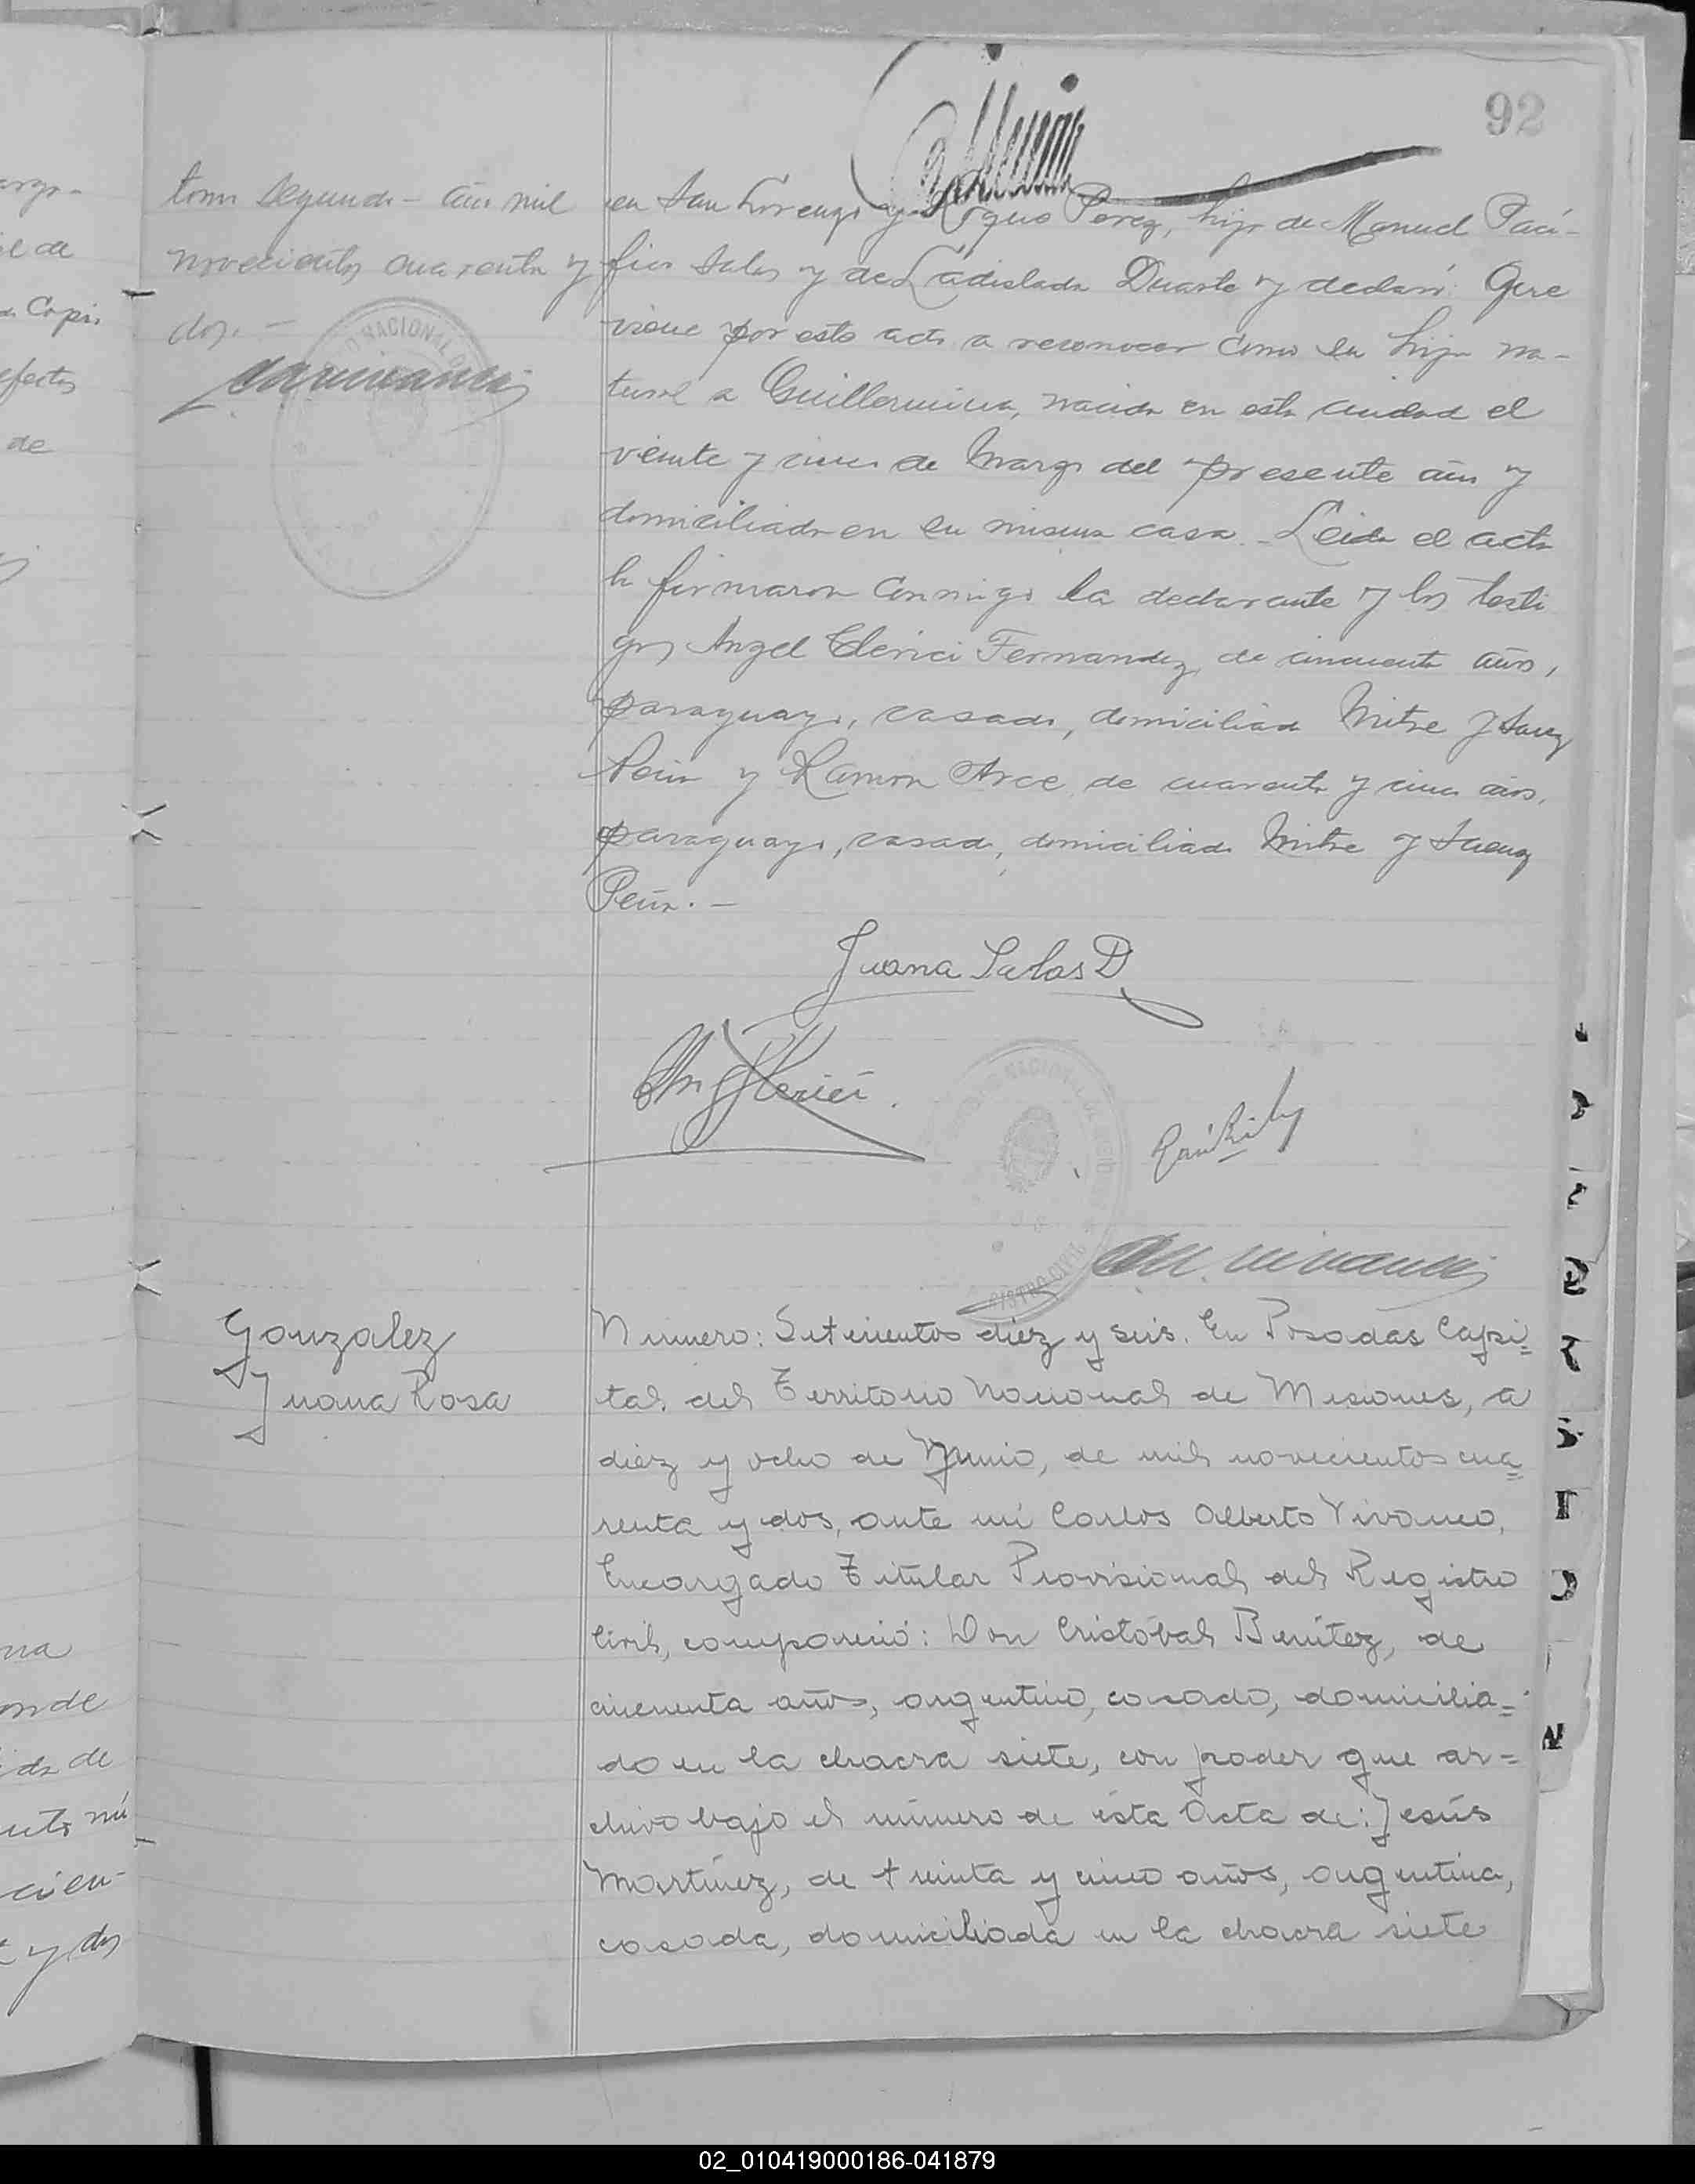 92
tomo segundo - año mil
novecientos cuarenta y
dos. -
en San Lorenzo y Roque Perez, hija de Manuel Pací-
fico Salas y de Ladislada Duarte y declaró: Que
viene por este acto a reconocer como su hija na-
tural a Guillermina, nacida en esta ciudad el
veinte y cinco de Marzo del presente año y
domiciliada en su misma casa. - Leida el acta
la firmaron conmigo la declarante y los testi
gos Angel Clerici Fernandez, de cincuenta años,
paraguayo, casado, domiciliado Mitre y Saenz
Peña y Ramon Arce, de cuarenta y cinco años,
paraguayo, casado, domiciliado Mitre y Saenz
Peña. -
Juana Salas D
Gonzalez
Juana Rosa
Número: Setecientos diez y seis. En Posadas Capi=
tal del Territorio Nacional de Misiones, a
diez y ocho de Junio, de mil novecientos cua=
renta y dos, ante mi Carlos Alberto Vivanco,
Encargado Titular Provisional del Registro
Civil, compareció: Don Cristóbal Benítez, de
cincuenta años, argentino, casado, domicilia=
do en la chacra siete, con poder que ar=
chivo bajo el número de ésta Acta de: Jesús
Martínez, de treinta y cinco años, argentina,
casada, domiciliada en la chacra siete
02_010419000186-041879